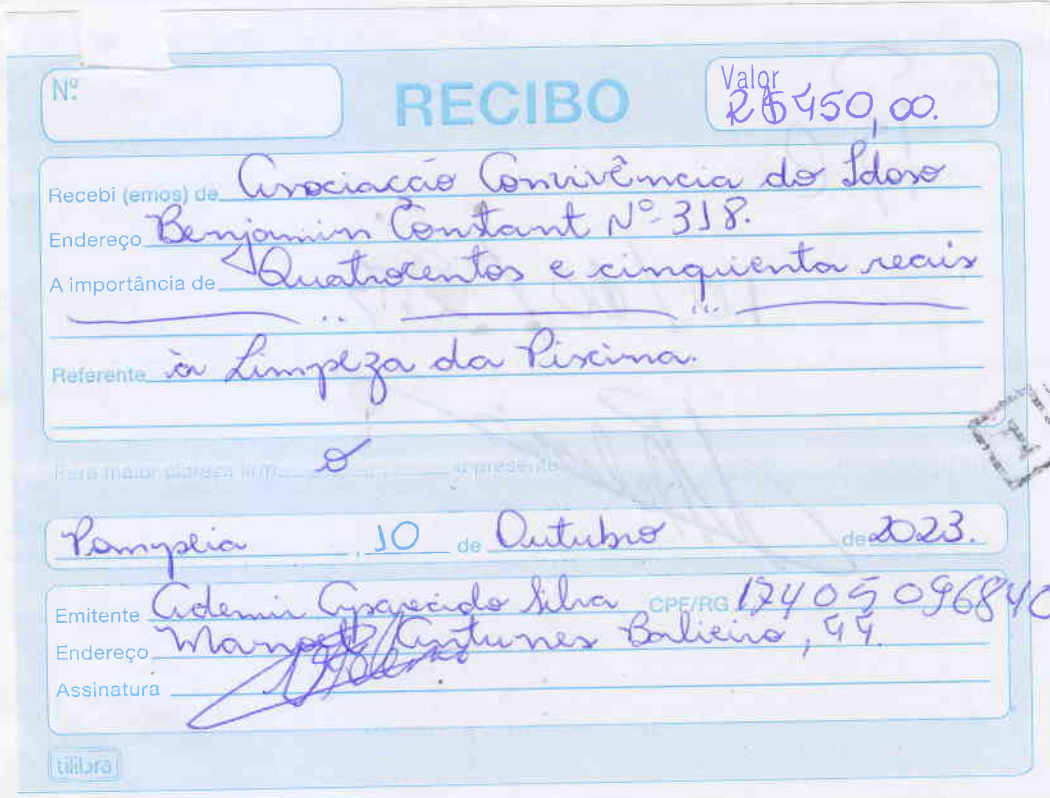 Nº
RECIBO
Valor
R$ 450,00.
Recebi (emos) de Associação Convivência do Idoso
Endereço Benjamin Constant Nº 318.
A importância de Quatrocentos e cinquenta reais
Referente à Limpeza da Piscina.
Para maior clareza firm o o presente
Pompeia, 10 de Outubro de 2023.
Emitente Ademir Aparecido Silva CPF/RG 17405096840
Endereço Manoel Antunes Balieiro, 44.
Assinatura
tilibra